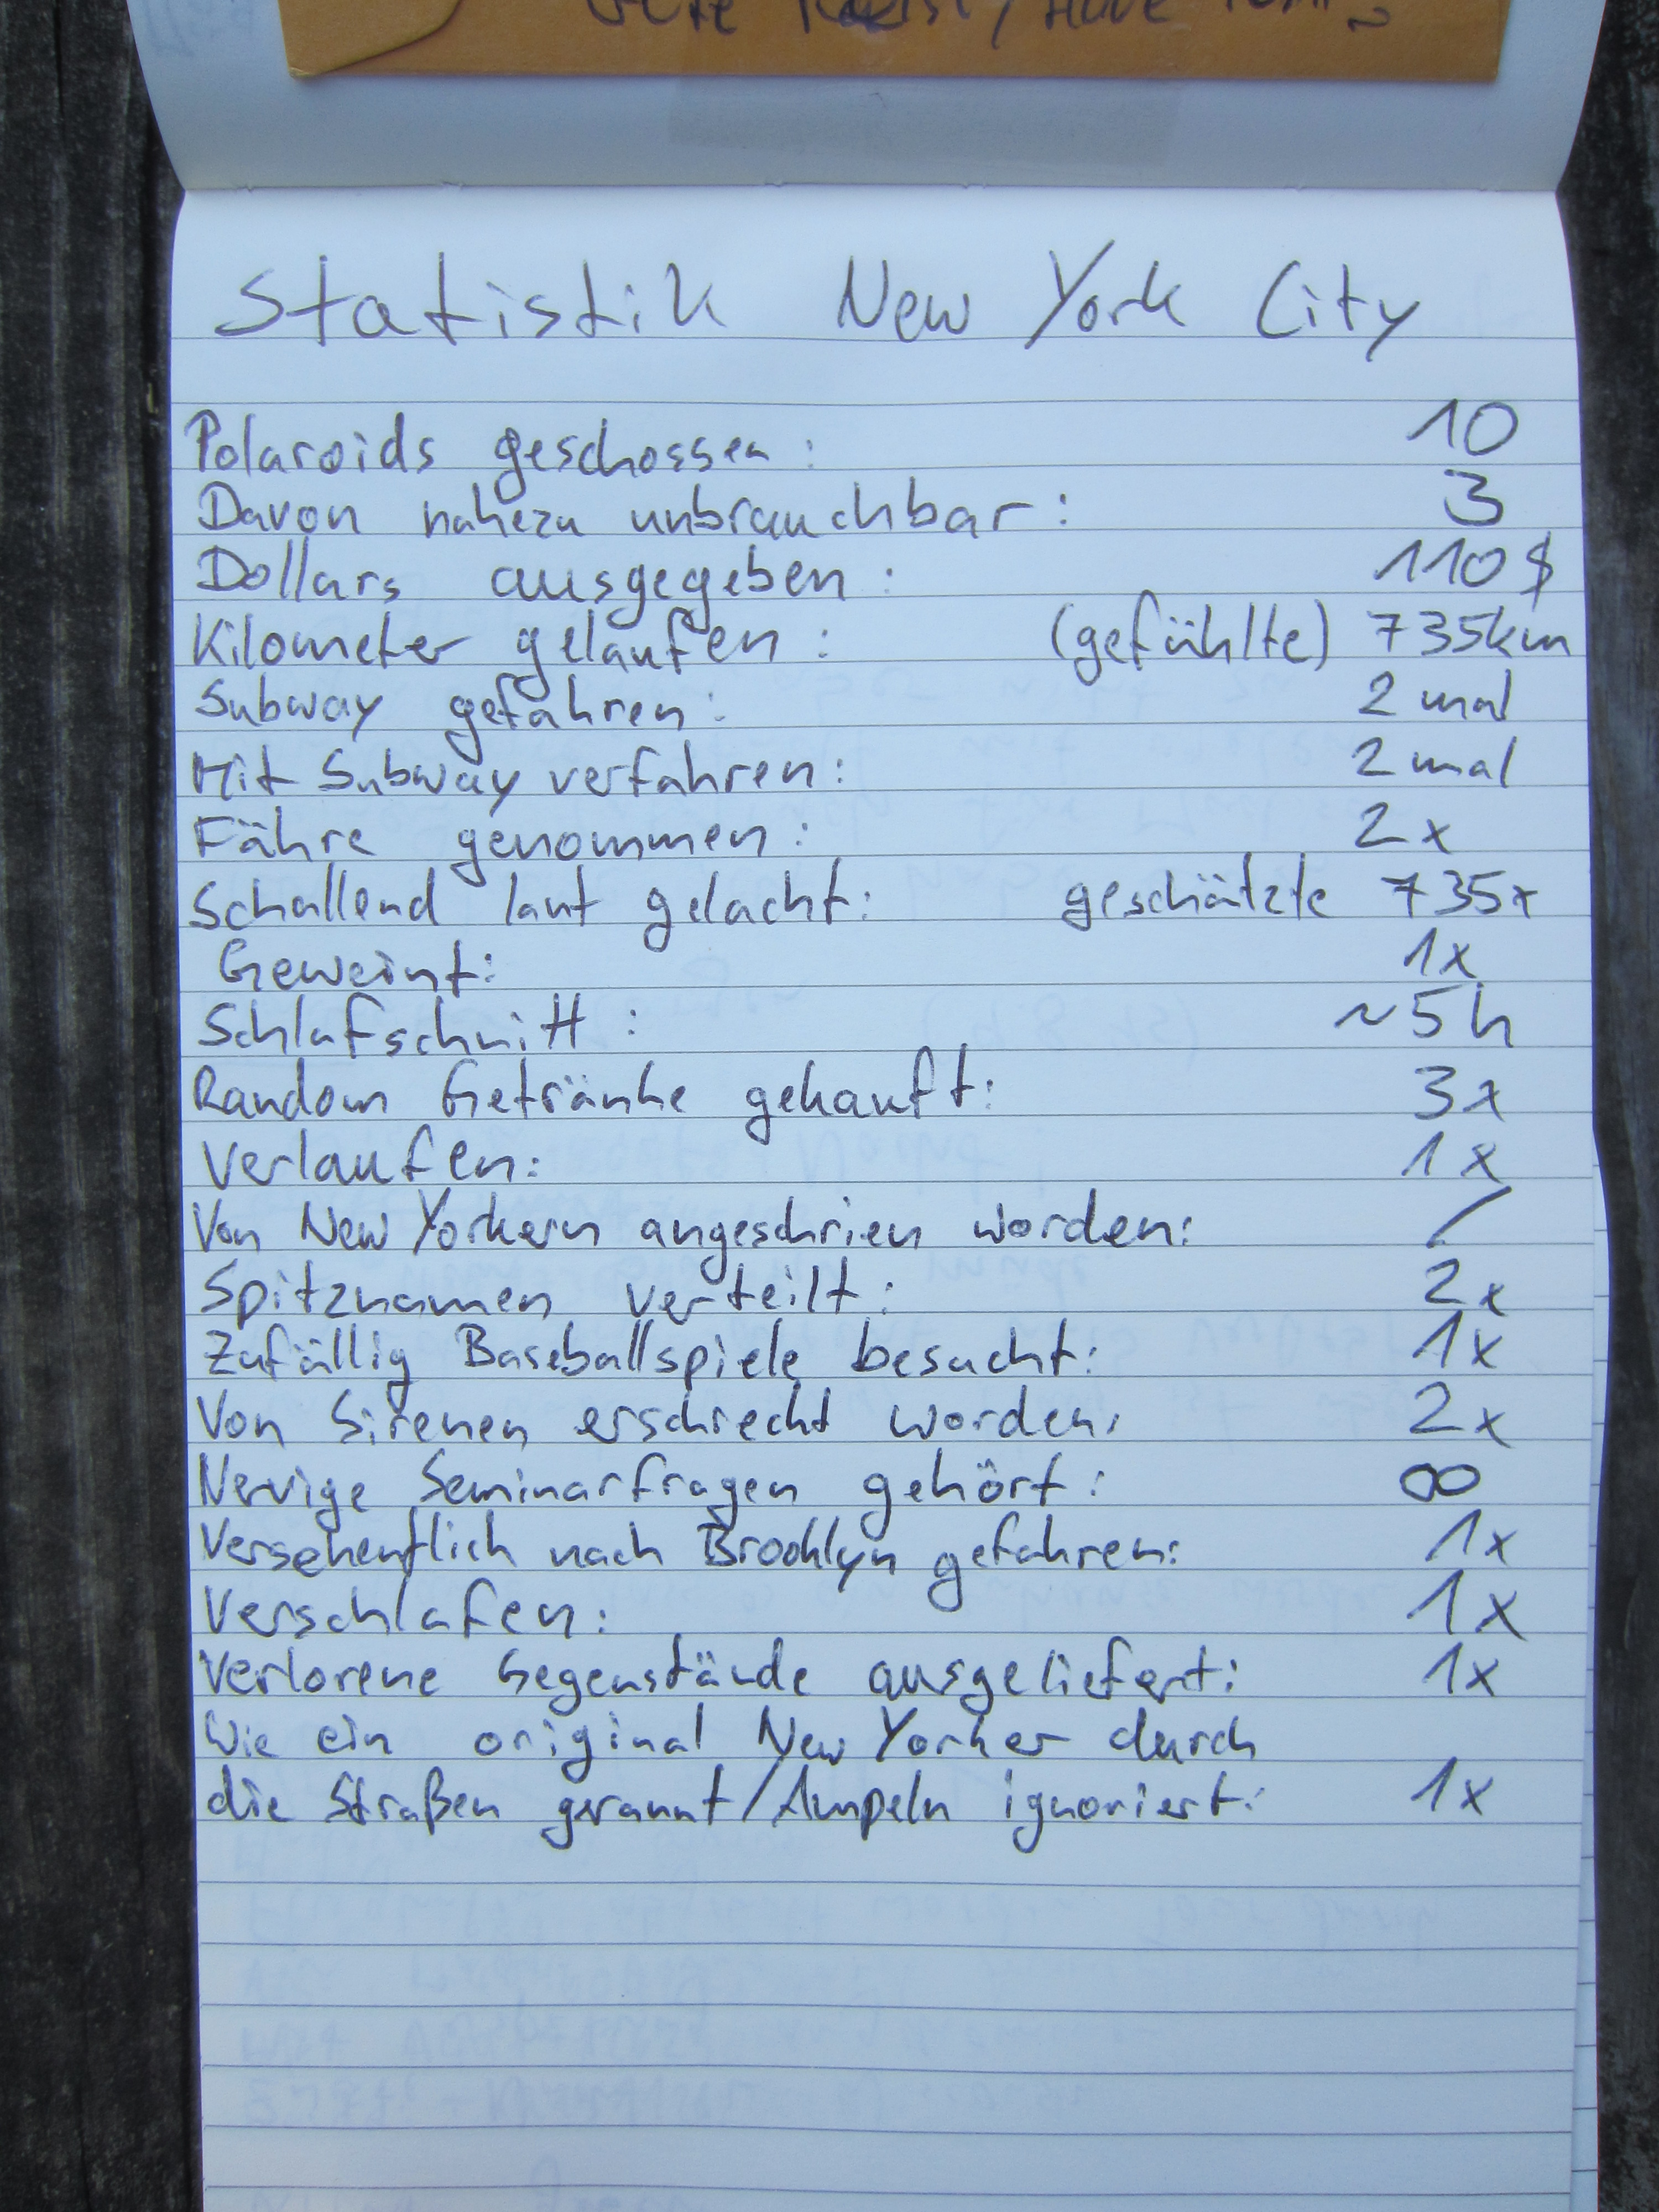 Statistik New York City
Polaroids geschossen: 10
Davon nahezu unbrauchbar: 3
Dollars ausgegeben: 110$
Kilometer gelaufen: (gefühlte) 735km
Subway gefahren: 2 mal
Mit Subway verfahren: 2 mal
Fähre genommen: 2x
Schallend laut gelacht: geschätzte 735x
Geweint: 1x
Schlafschnitt: ~5h
Random Getränke gekauft: 3x
Verlaufen: 1x
Von New Yorkern angeschrien worden: /
Spitznamen verteilt: 2x
Zufällig Baseballspiele besucht: 1x
Von Sirenen erschreckt worden: 2x
Nervige Seminarfragen gehört: ∞
Versehentlich nach Brooklyn gefahren: 1x
Verschlafen: 1x
Verlorene Gegenstände ausgeliefert: 1x
Wie ein original New Yorker durch
die Straßen gerannt/Ampeln ignoriert: 1x